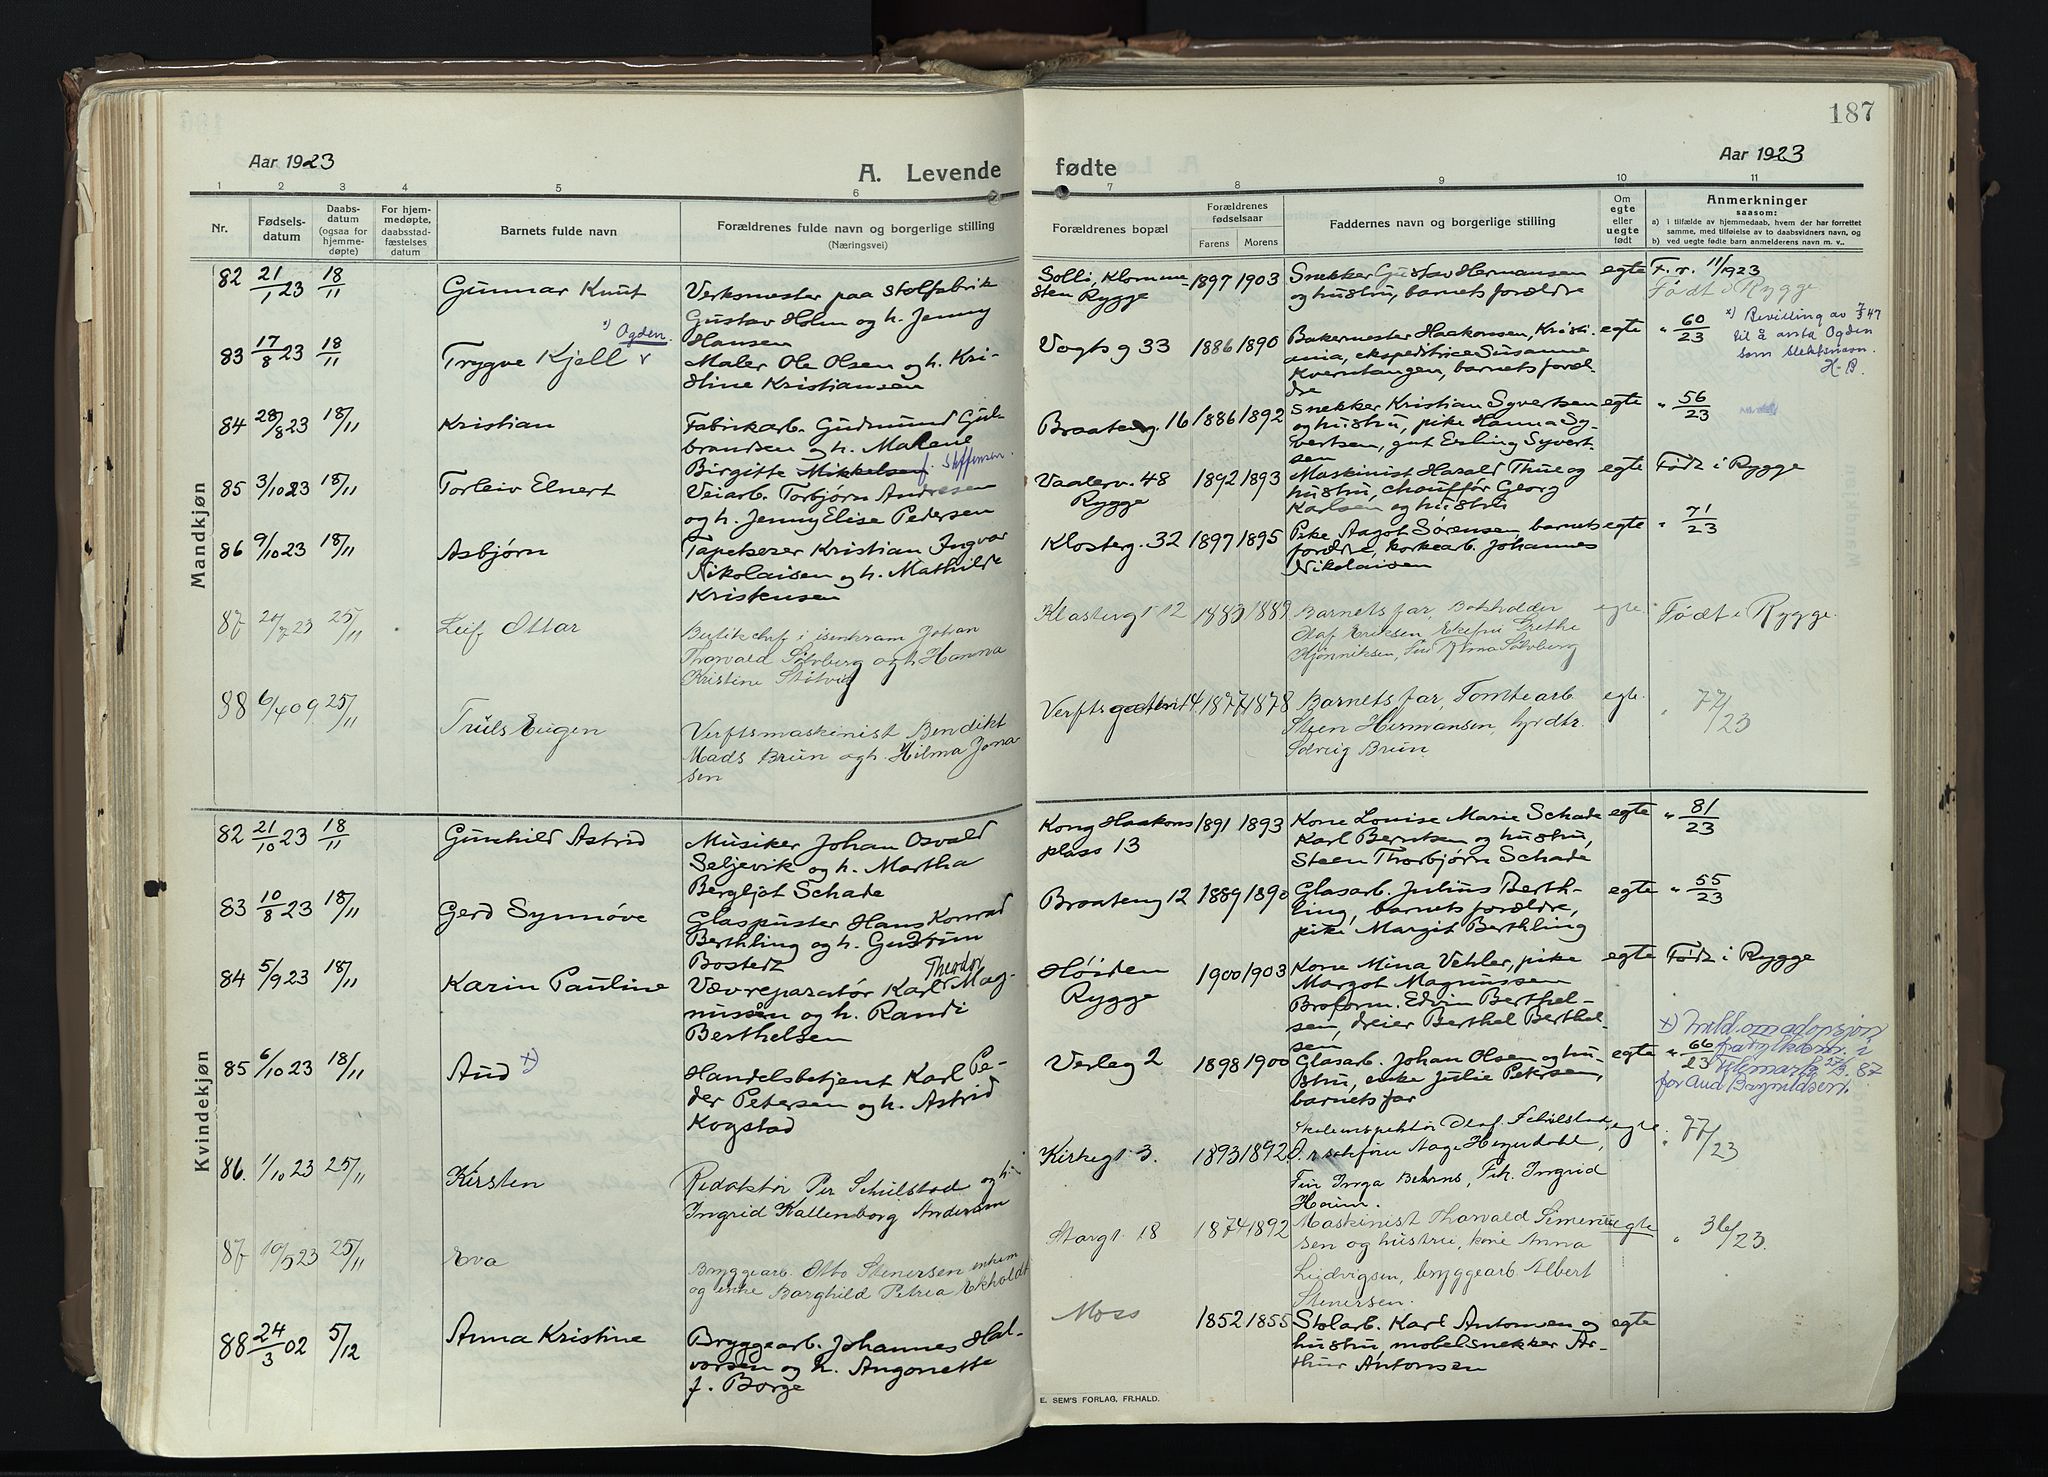 187
Aar 1923
A. Levende fødte
Aar 1923
1 2 3 4 5 6 7 8 9 10 11
Nr.
Fødsels-
datum
Daabs-
datum
(ogsaa for
hjemme-
døpte)
For hjem-
medøpte,
daabsstad-
fæstelses
datum
Barnets fulde navn
Forældrenes fulde navn og borgerlige stilling
(Næringsvei)
Forældrenes bopæl
Forældrenes
fødselsaar
Farens Morens
Faddernes navn og borgerlige stilling
Om
egte
eller
uegte
født
Anmerkninger
saasom:
a) i tilfælde av hjemmedaab, hvem der har forrettet
samme, med tilføielse av to daabsvidners navn, og
b) ved uegte fødte barn anmelderens navn m. v..
Mandkjøn
82 21/1 23 18/11 Gunnar Knut
Verksmester paa Stolfabrik
Gustav Holm og h. Jenny
Hansen
Solli, Klommesten
Rygge
1897 1903
Snekker Gustav Hermansen
og hustru, barnets forældre
egte
F. r. 11/1923
Født i Rygge
83 17/8 23 18/11 Trygve Kjell x) Ogden
Maler Ole Olsen og h. Kri-
stine Kristiansen
Vogts g 33
1886 1890
Bakermester Haakonsen, Kristi-
ania, ekspeditrice Susanne
Kverntangen, barnets foræl-
dre
egte
" 60/23
x) Bevilling av 47
til å anta Ogden
som slektsnavn.
H-B.
84 28/8 23 18/11 Kristian
Fabrikarb. Gudmund Gul-
brandsen og h. Malene
Birgitte Mikkelsen f. Steffensen.
Braateng. 16
1886 1892
Snekker Kristian Syvertsen
og hustru, pike Hanna Sy-
vertsen, gut Erling Syvert-
sen
egte
" 56/23
85 3/10 23 18/11 Torleiv Elnert
Veiarb. Torbjørn Andresen
og h. Jenny Elise Pedersen
Vaalerv. 48
Rygge
1892 1893
Maskinist Harald Thue og
hustru, chauffør Georg
Karlsen og hustru
egte
Født i Rygge
86 9/10 23 18/11 Asbjørn
Tapetserer Kristian Ingvar
Nikolaisen og h. Mathilde
Kristensen
Klosterg. 32
1897 1895
Pike Aagot Sørensen, barnets
forældre, korkearb. Johannes
Nikolaisen
egte
" 71/23
87 20/7 23 25/11 Leif Ottar
Butikchef i isenkram Johan
Thorvald Sølvberg og h. Hanna
Kristine Støtvig
Klostergt. 12
1883 1889
Barnets far, Bokholder
Olaf Eriksen, Grethe
Alma Sølvberg
egte
Født i Rygge
88 6/4 09 25/11 Truls Eugen
Verftsmaskinist Bendikt
Mads Brun og h. Hilma Jona-
sen
Verfts 14
1877 1878
Barnets far, Tomtearb.
Steen Hermansen,
Solveig Brun
egte
" 77/23
Kvindekjøn
82 21/10 23 18/11 Gunhild Astrid
Musiker Johan Osvald
Seljevik og h. Martha
Bergljot Schade
Kong Haakons
plass 13
1891 1893
Kone Louise Marie Schade
Karl Berntsen og hustru,
Steen Thorbjørn Schade
egte
" 81/23
83 10/8 23 18/11 Gerd Synnøve
Glaspuster Hans Konrad
Berthling og h. Gudrun
Bosted
Braateng 12
1889 1890
Glasarb. Julius Berth-
ling, barnets forældre,
pike Margit Berthling
egte
" 55/23
84 5/9 23 18/11 Karin Pauline
Vævreparatør Karl Theodor Mag-
nussen og h. Randi
Berthelsen
Høiden
Rygge
1900 1903
Kone Mina Vehler, pike
Margot Magnussen
Broform. Edvin Berthel-
sen, dreier Berthel Berthel-
sen
egte
Født i Rygge
85 6/10 23 18/11 Aud x)
Handelsbetjent Karl Pe-
der Petersen og h. Astrid
Kogstad
Verleg 2
1898 1900
Glasarb. Johan Olsen og hu-
stru, enke Julie Petersen,
barnets far
egte
" 66/23
x) Meld. om adopsjon
fra fylkesm. i
Telemark 87
for Aud Brynildsen.
86. 1/10 23 25/11 Kirsten
Redaktør Per Schulstad og h.
Ingrid Kallenborg Andersen
Kirkegt. 3.
1893 1892
Skoleinspektør Olaf Schulstad,
Aage Heyerdahl,
Fru Inga Behrns, Frk. Ingrid
egte
" 77/23
87 10/5 23 25/11 Eva
Bryggearb. Otto Stenersen enkem
og enke Borghild Petrea Ekholdt
Storgt. 18
1874 1892
Maskinist Thorvald Simen-
sen og hustru, kone Anna
Ludvigsen, bryggearb Albert
Stenersen.
egte
" 36/23.
88 24/3 02 5/12 Anna Kristine
Bryggearb. Johannes Hal-
vorsen og h. Angonette
f. Borge
Moss
1852 1855
Stolarb. Karl Antonsen og
hustru, møbelsnekker Ar-
thur Antonsen
egte
E. SEM'S FORLAG, FR.HALD.